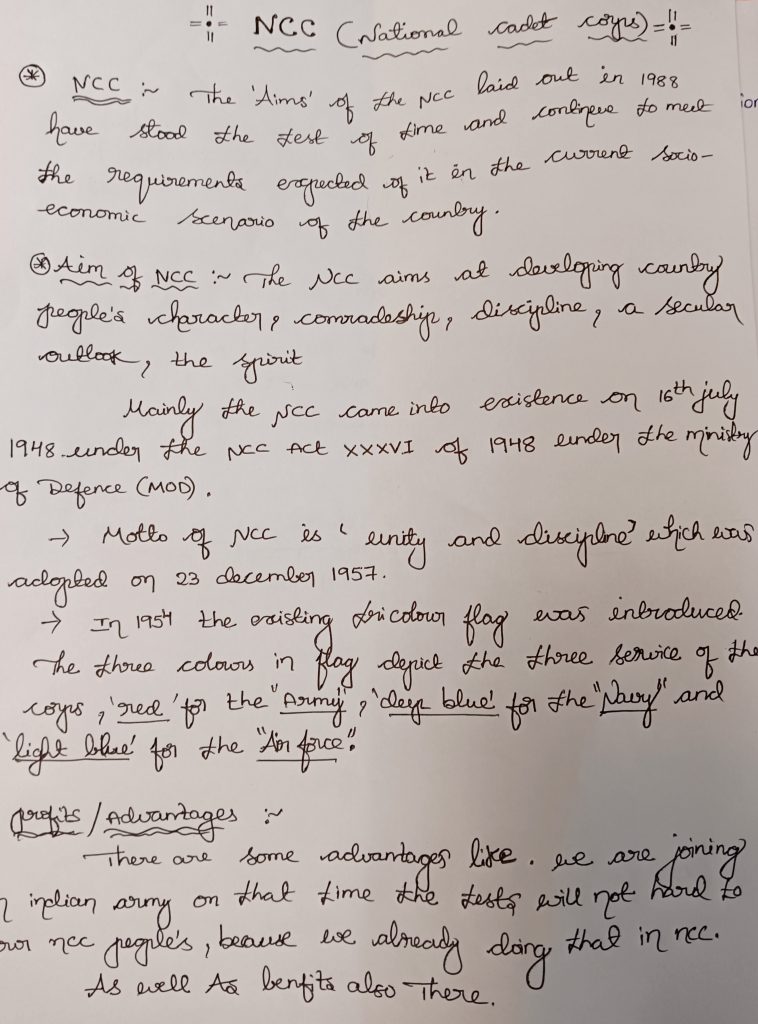 NCC (National cadet corps)
NCC :~ The 'Aims' of the NCC laid out in 1988
have stood the test of time and continue to meet
the requirements expected of it in the current socio-
economic scenario of the country.
Aim of NCC :~ The NCC aims at developing country
people's character, comradeship, discipline, a secular
outlook, the spirit
Mainly the NCC came into existence on 16th july
1948 under the NCC Act XXXVI of 1948 under the ministry
of Defence (MOD).
→ Motto of NCC is 'unity and discipline' which was
adopted on 23 december 1957.
→ In 1954 the existing tricolour flag was introduced.
The three colours in flag depict the three service of the
corps, 'red' for the "Army", 'deep blue' for the "Navy" and
'light blue' for the "Air force".
profits/Advantages :~
There are some advantages like. we are joining
indian army on that time the tests will not hard to
our ncc people's, because we already doing that in ncc.
As well As benfits also There.